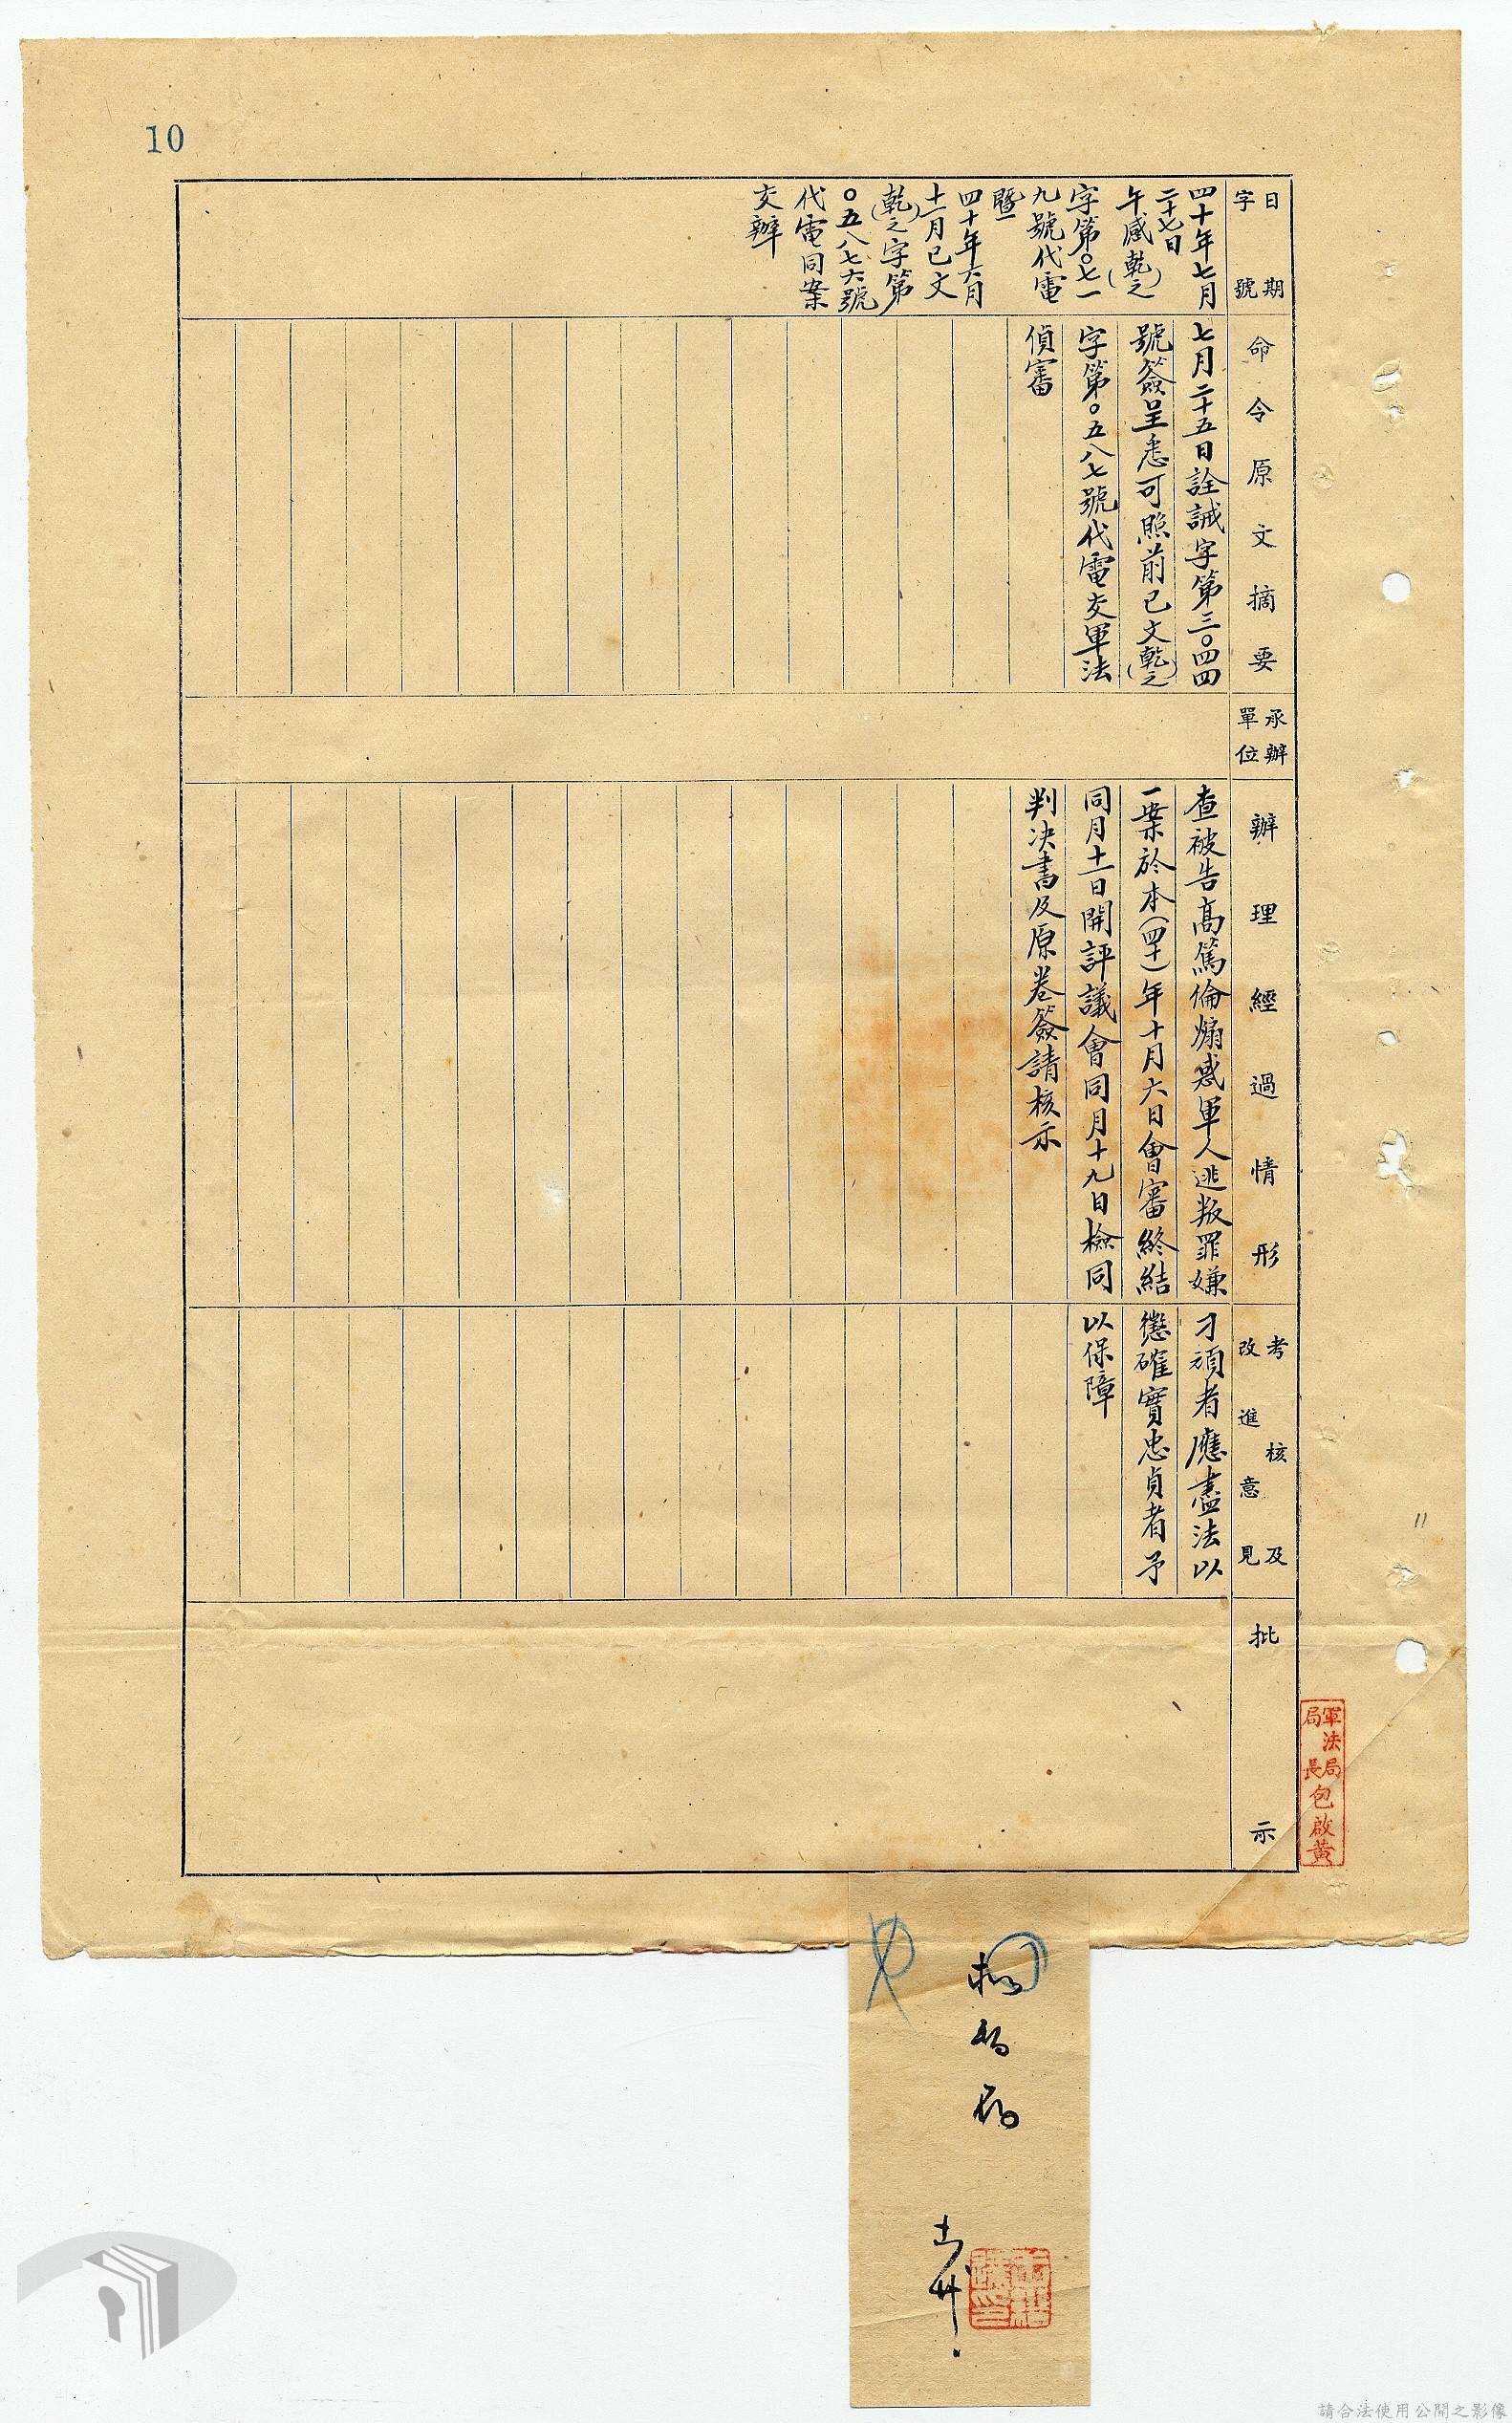 10
日期
字號
四十年七月
二十七日
午感(乾之)
字第〇七一
九號代電
暨
四十年六月
十二日已文
(乾之)字第
〇五八七六號
代電同案
交辦
命令原文摘要
七月二十五日詮誡字第三〇四四
號簽呈悉可照前已文(乾之)
字第〇五八七號代電交軍法
偵審
承辦
單位
辦理經過情形
查被告高篤倫煽惑軍人逃叛罪嫌
一案於本(四十)年十月六日會審終結
同月十一日開評議會同月十九日檢同
判決書及原卷簽請核示
考核及
改進意見
刁頑者應盡法以
懲確實忠貞者予
以保障
批示
軍法局
局長
包啟黃
11
請合法使用公開之影像